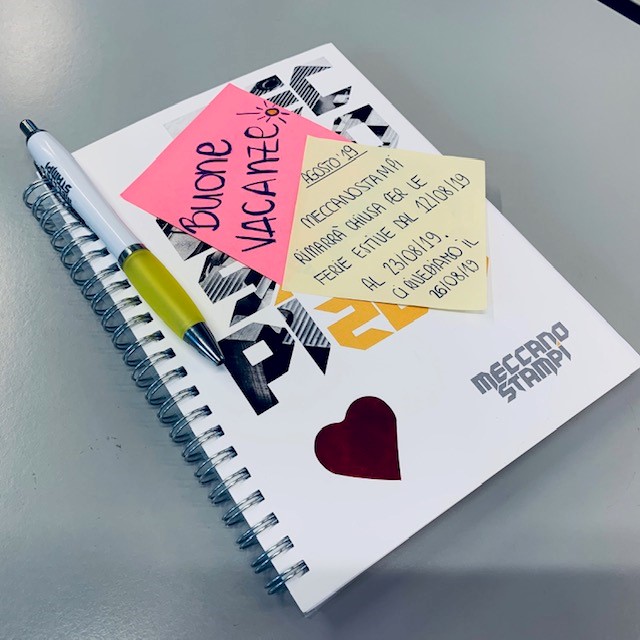 BUONE
VACANZE!
AGOSTO '19
MECCANOSTAMPI
RIMARRÀ CHIUSA PER LE
FERIE ESTIVE DAL 12/08/19
AL 23/08/19.
CI RIVEDIAMO IL
26/08/19
PI 2
MECCANO
STAMPI